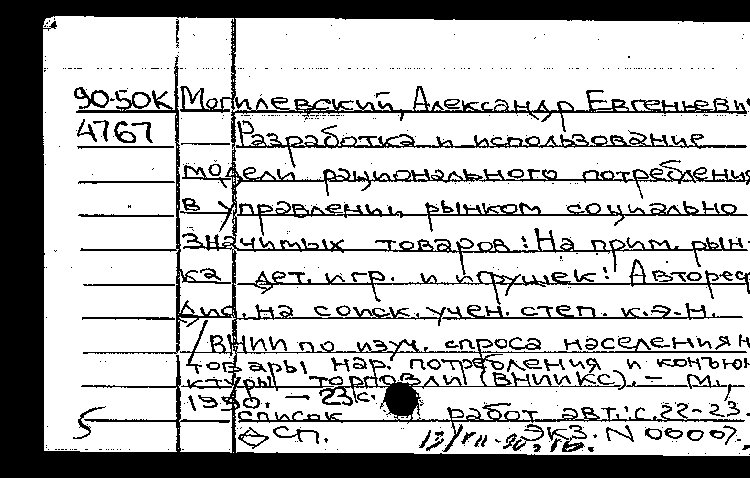 90-50К Могилевский, Александр Евгеньеви
4767 Разработка и использование
модели рационального потребления
в управлении рынком социально
значимых товаров: На прим. рын-
ка дет. игр. и игрушек: Автореф
дис. на соиск. учен. степ. к.э.н.
/ВНИИ по изуч. спроса населения н
товары нар. потребления и конъюн
ктуры торговли (ВНИИКС). - М.,
1990. - 23 с.
список работ авт.: с. 22-23.
СП. Экз. N 00007.